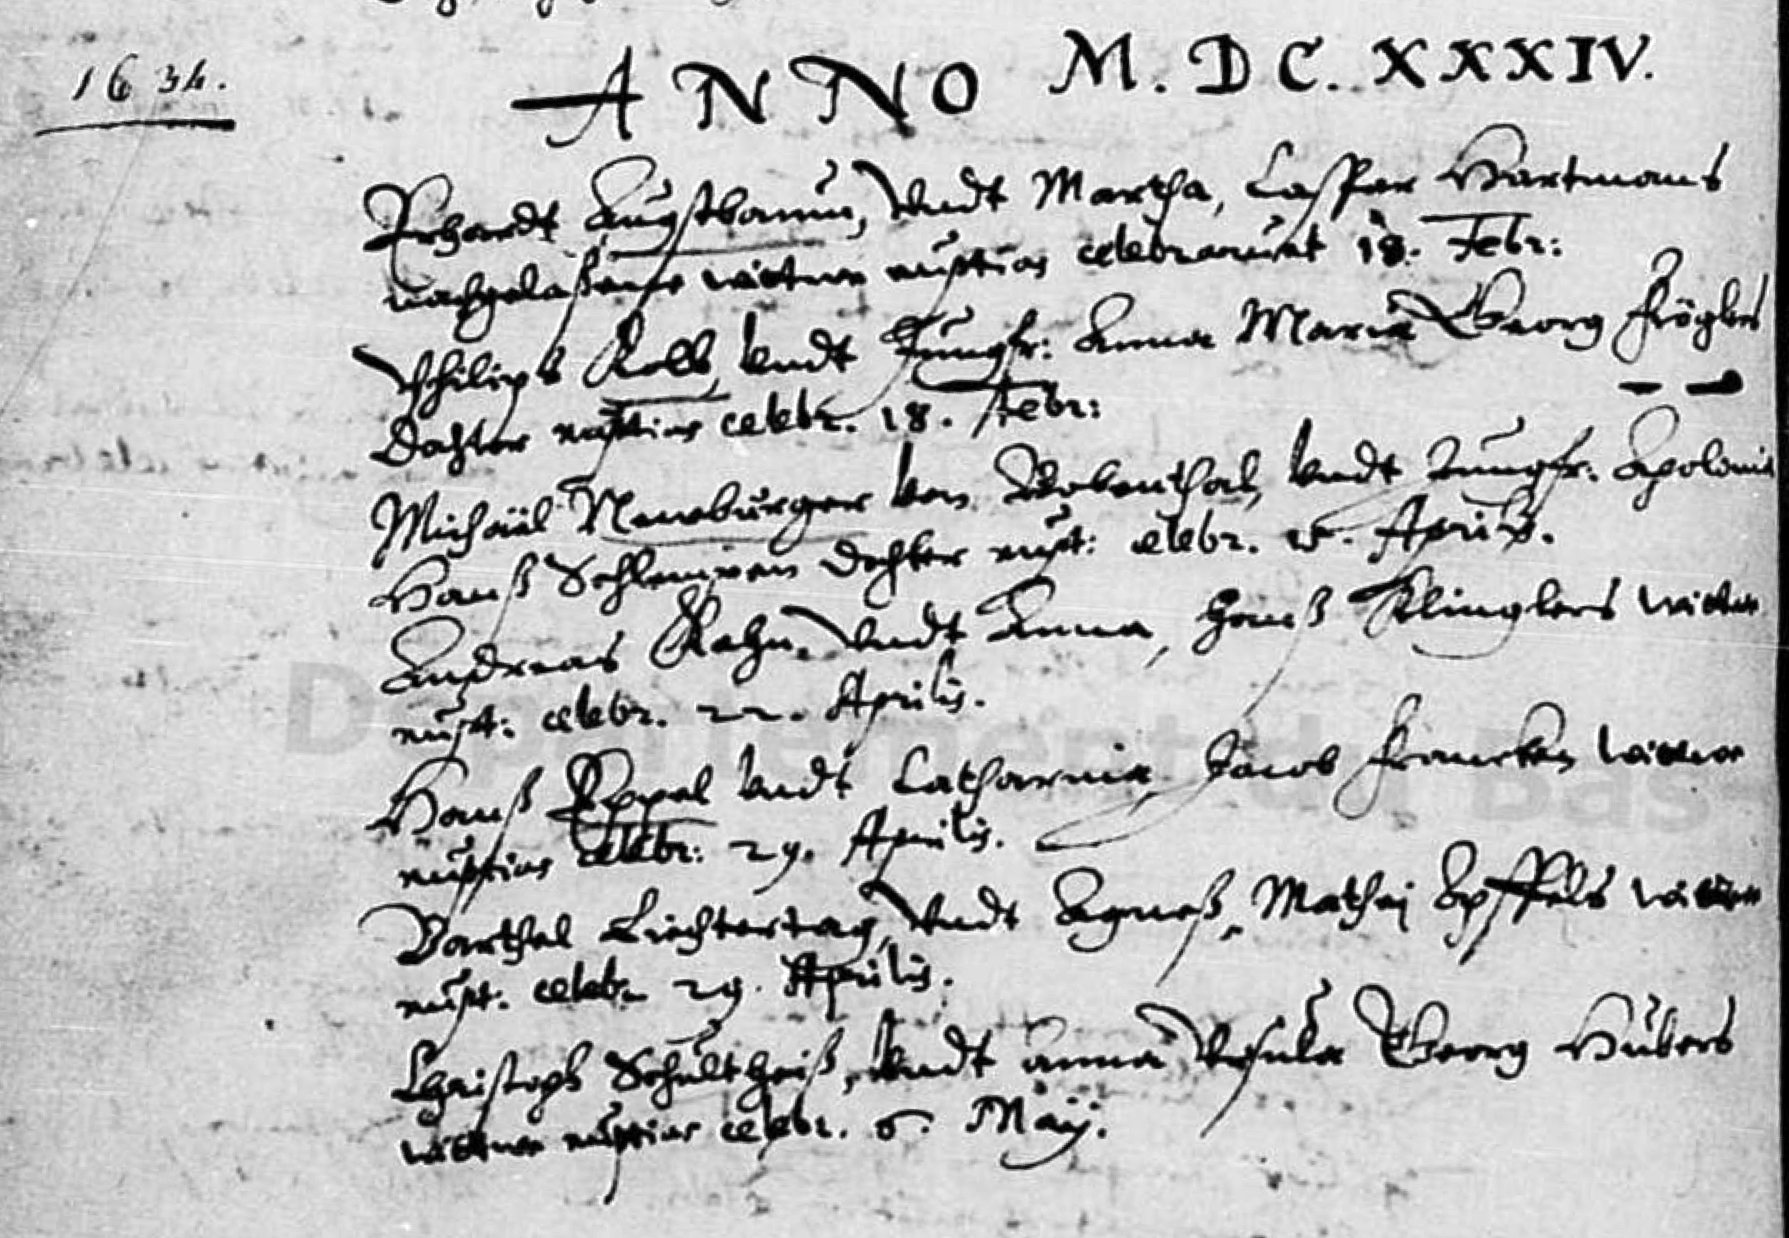 1634.
ANNO M.DC.XXXIV.
Erhardt Augstbaum, Undt Martha, Caspar Hartmans
nachgelaßene wittwe nuptias celebrarunt 18. Febr:
Philips Kolb, Undt Jungfr: Anna Maria Georg
Dochter nuptias celebr. 18. Febr:
Michäel Newburger von Undt Jungfr: Apolonia
Hanß dochter nupt: celebr. 15. Aprilis.
Andreas Rahn, Undt Anna, Hanß Klinglers wittwe
nupt: celebr. 22. Aprilis.
Hanß Eppel Undt Catharina Jacob Francken wittwe
nuptias celebr: 29. Aprilis.
Barthel Liechtertag, Undt Agneß, Mathei wittwe
nupt. celebr. 29. Aprilis.
Christoph Schultheiß, Undt anna Ursula Georg Hubers
wittwe nuptias celebr. 6. Maij.